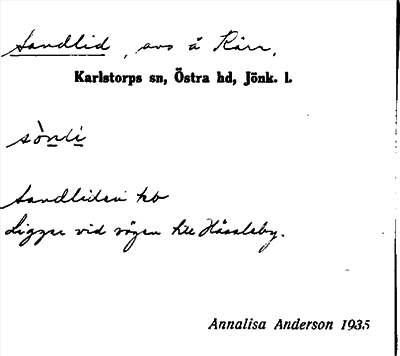 Sandlid, avs å Rärr,
Karlstorps sn, Östra hd, Jönk. l.
sòndi
Sandliden kb
Ligger vid vägen till Hässleby.
Annalisa Anderson 1935